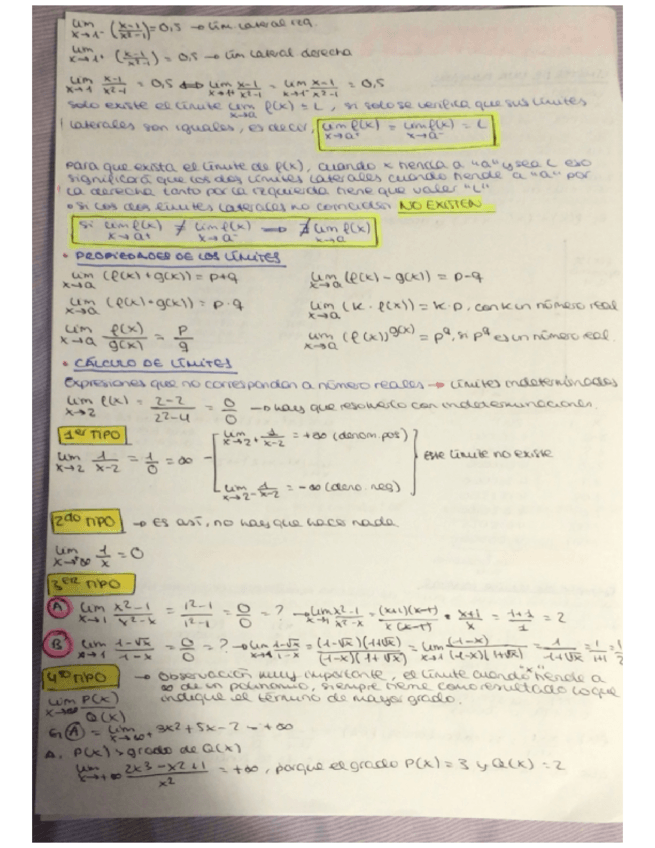 lim x→1⁻ (x-1/x²-1) = 0,5 → lím lateral izq.
lim x→1⁺ (x-1/x²-1) = 0,5 → lím lateral derecha
lim x→1 x-1/x²-1 = 0,5 ⟺ lim x→1⁺ x-1/x²-1 = lim x→1⁻ x-1/x²-1 = 0,5
Solo existe el límite lim x→a f(x) = L, si solo se verifica que sus límites
laterales son iguales, es decir, lim x→a⁺ f(x) = lim x→a⁻ f(x) = L
para que exista el límite de f(x), cuando x tienda a "a" y sea L eso
significará que los dos límites laterales cuando tiende a "a" por
la derecha, tanto por la izquierda tiene que valer "L"
• si los dos límites laterales no coinciden NO EXISTEN
Si lim x→a⁺ f(x) ≠ lim x→a⁻ f(x) ⟹ ∄ lim x→a f(x)
• PROPIEDADES DE LOS LÍMITES
lim x→a (f(x)+g(x)) = p+q lim x→a (f(x)-g(x)) = p-q
lim x→a (f(x)·g(x)) = p·q lim x→a (k·f(x)) = k·p, con k un número real
lim x→a f(x)/g(x) = p/q lim x→a (f(x))^g(x) = p^q, si p^q es un número real.
• CÁLCULO DE LÍMITES
Expresiones que no correspondan a número reales → límites indeterminados
lim x→2 f(x) = 2-2/2²-4 = 0/0 → hay que resolverlo con indeterminaciones.
1er TIPO
lim x→2 1/x-2 = 1/0 = ∞ - [lim x→2⁺ 1/x-2 = +∞ (denom. pos)
este límite no existe
lim x→2⁻ 1/x-2 = -∞ (deno. neg)]
2do TIPO → Es así, no hay que hace nada.
lim x→∞ 1/x = 0
3er TIPO
A lim x→1 x²-1/x²-x = 1²-1/1²-1 = 0/0 = ? → lim x→1 x²-1/x²-x = (x+1)(x-1)/x(x-1) = x+1/x = 1+1/1 = 2
B lim x→1 1-√x/1-x = 0/0 = ? → lim x→1 1-√x/1-x = (1-√x)(1+√x)/(1-x)(1+√x) = lim x→1 (1-x)/(1-x)(1+√x) = 1/1+√x = 1/1+1 = 1/2
4to TIPO → Observación muy importante, el límite cuando "x" tiende a
∞ de un polinomio, siempre tiene como resultado lo que
indique el término de mayor grado.
lim x→∞ P(x)/Q(x)
A = lim x→∞ 3x²+5x-2 = +∞
P(x) > grado de Q(x)
lim x→+∞ 2x³-x²+1/x² = +∞, porque el grado P(x) = 3 y Q(x) = 2